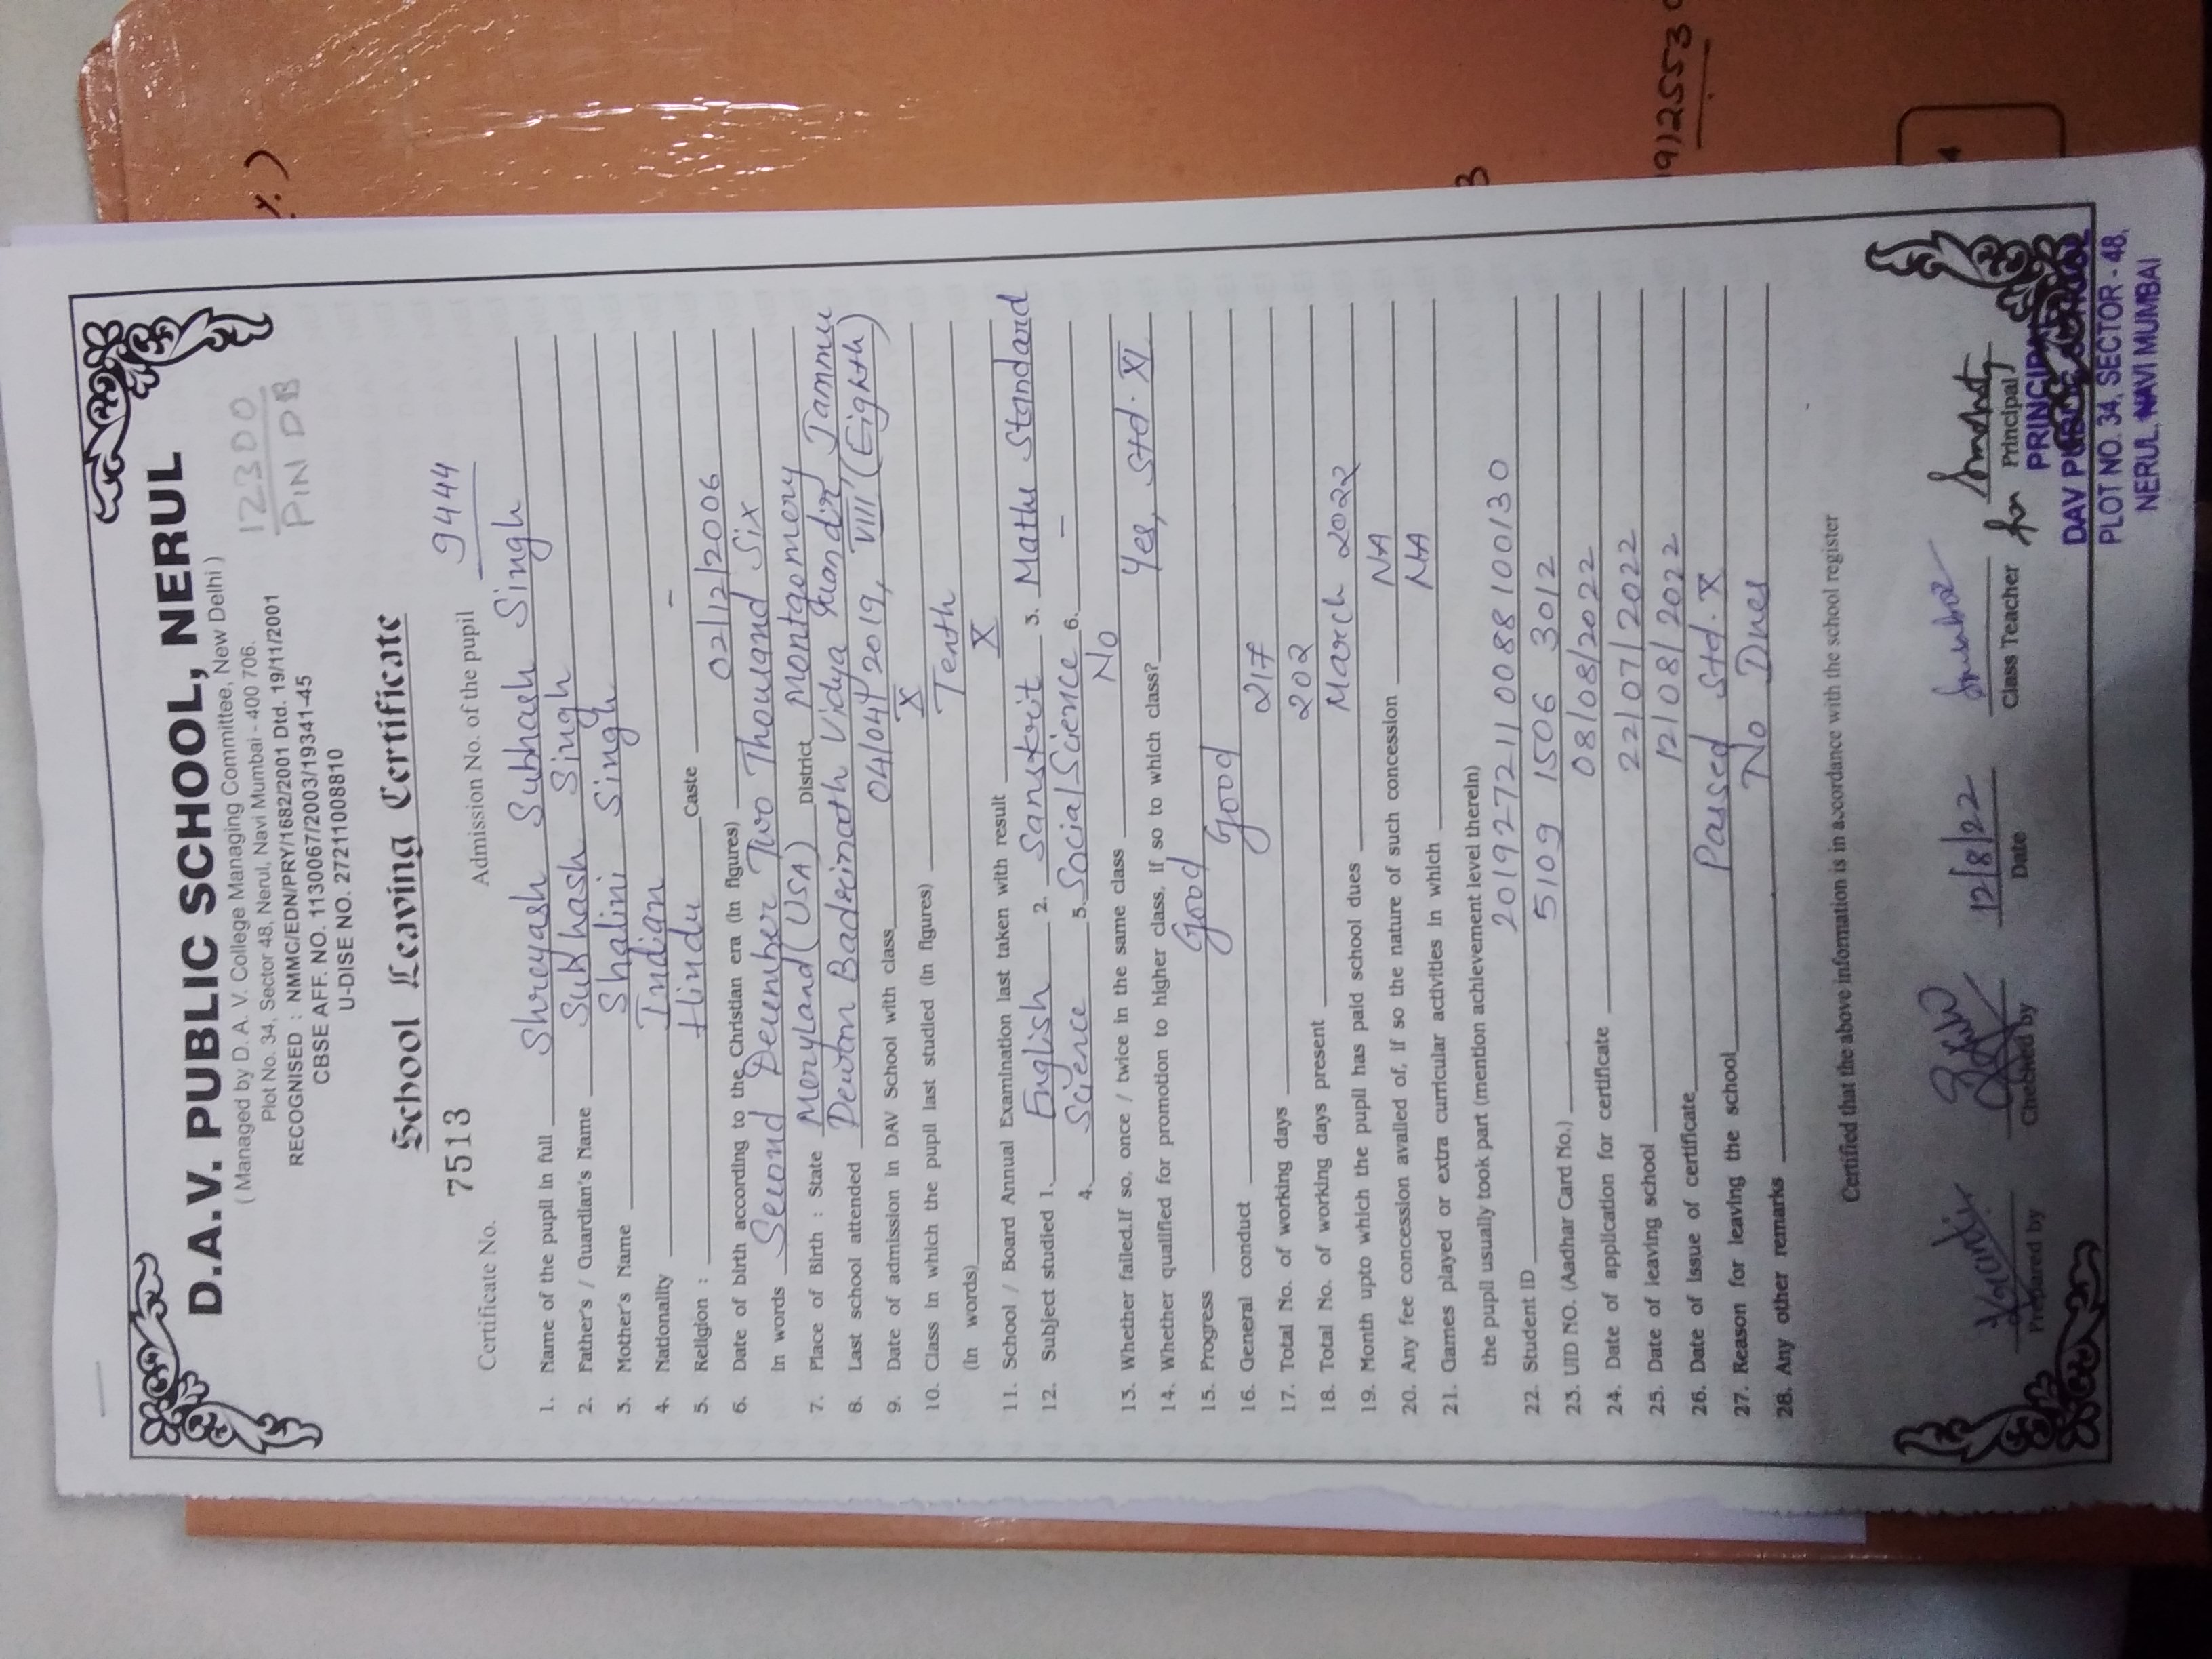 D.A.V. PUBLIC SCHOOL, NERUL
( Managed by D. A. V. College Managing Committee, New Delhi )
Plot No. 34, Sector 48, Nerul, Navi Mumbai - 400 706.
RECOGNISED : NMMC/EDN/PRY/1682/2001 Dtd. 19/11/2001
CBSE AFF. NO. 1130067/2003/19341-45
U-DISE NO. 27211008810
12300
PIN DB
School Leaving Certificate
Certificate No. 7513 Admission No. of the pupil 9444
1. Name of the pupil in full Shreyash Subhash Singh
2. Father's / Guardian's Name Subhhash Singh
3. Mother's Name Shalini Singh
4. Nationality Indian
5. Religion : Hindu Caste -
6. Date of birth according to the Christian era (in figures) 02/12/2006
In words Second December Two Thousand Six
7. Place of Birth : State Meryland (USA) District Montgomery
8. Last school attended Dewan Badrinath Vidya Mandir Jammu
9. Date of admission in DAV School with class 04/04/2019, VIII (Eighth)
10. Class in which the pupil last studied (in figures) X
(in words) Tenth
11. School / Board Annual Examination last taken with result X
12. Subject studied 1. English 2. Sanskrit 3. Maths Standard
4. Science 5. Social Science 6. -
13. Whether failed.If so, once / twice in the same class No
14. Whether qualified for promotion to higher class, if so to which class? Yes, Std. XI
15. Progress Good
16. General conduct Good
17. Total No. of working days 217
18. Total No. of working days present 202
19. Month upto which the pupil has paid school dues March 2022
20. Any fee concession availed of, if so the nature of such concession NA
21. Games played or extra curricular activities in which NA
the pupil usually took part (mention achievement level therein)
22. Student ID 2019272110088100130
23. UID NO. (Aadhar Card No.) 5109 1506 3012
24. Date of application for certificate 08/08/2022
25. Date of leaving school 22/07/2022
26. Date of issue of certificate 12/08/2022
27. Reason for leaving the school Passed Std. X
28. Any other remarks No Dues
Certified that the above information is in accordance with the school register
12/8/22
for
Prepared by Checked by Date Class Teacher Principal
PRINCIPAL
DAV PUBLIC SCHOOL
PLOT NO. 34, SECTOR - 48,
NERUL, NAVI MUMBAI